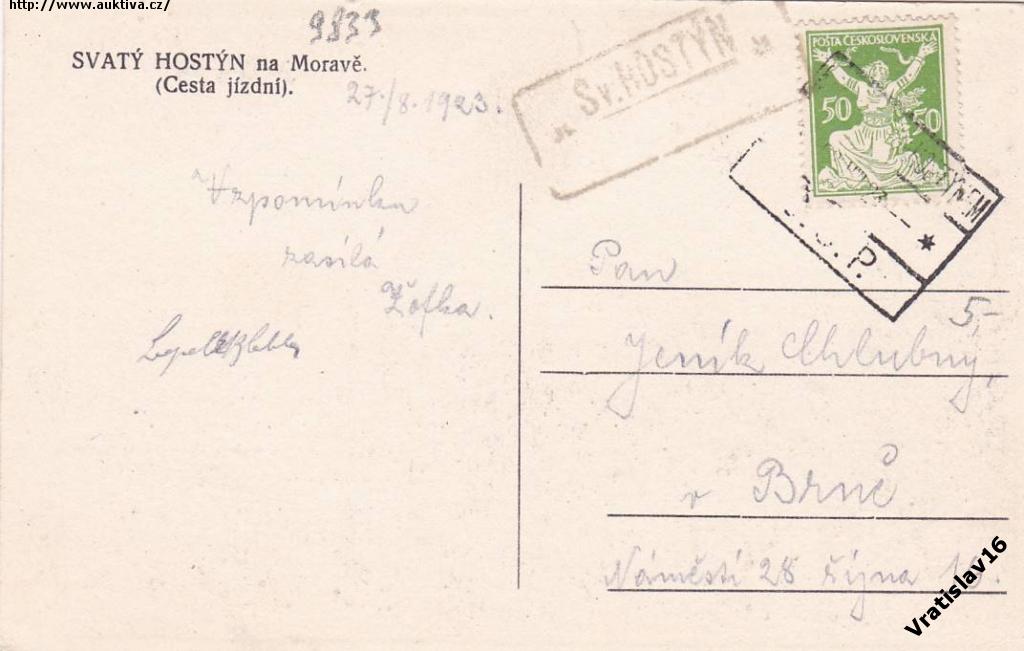 http://www.auktiva.cz/
9833
SVATÝ HOSTÝN na Moravě.
(Cesta jízdní).
27./8. 1923.
Sv. HOSTÝN
POŠTA ČESKOSLOVENSKÁ
50 50
Vzpomínku
zasílá
Žofka.
Pan
5,-
Jeník Chlubný,
v Brně.
Náměstí 28 října 16.
Vratislav16